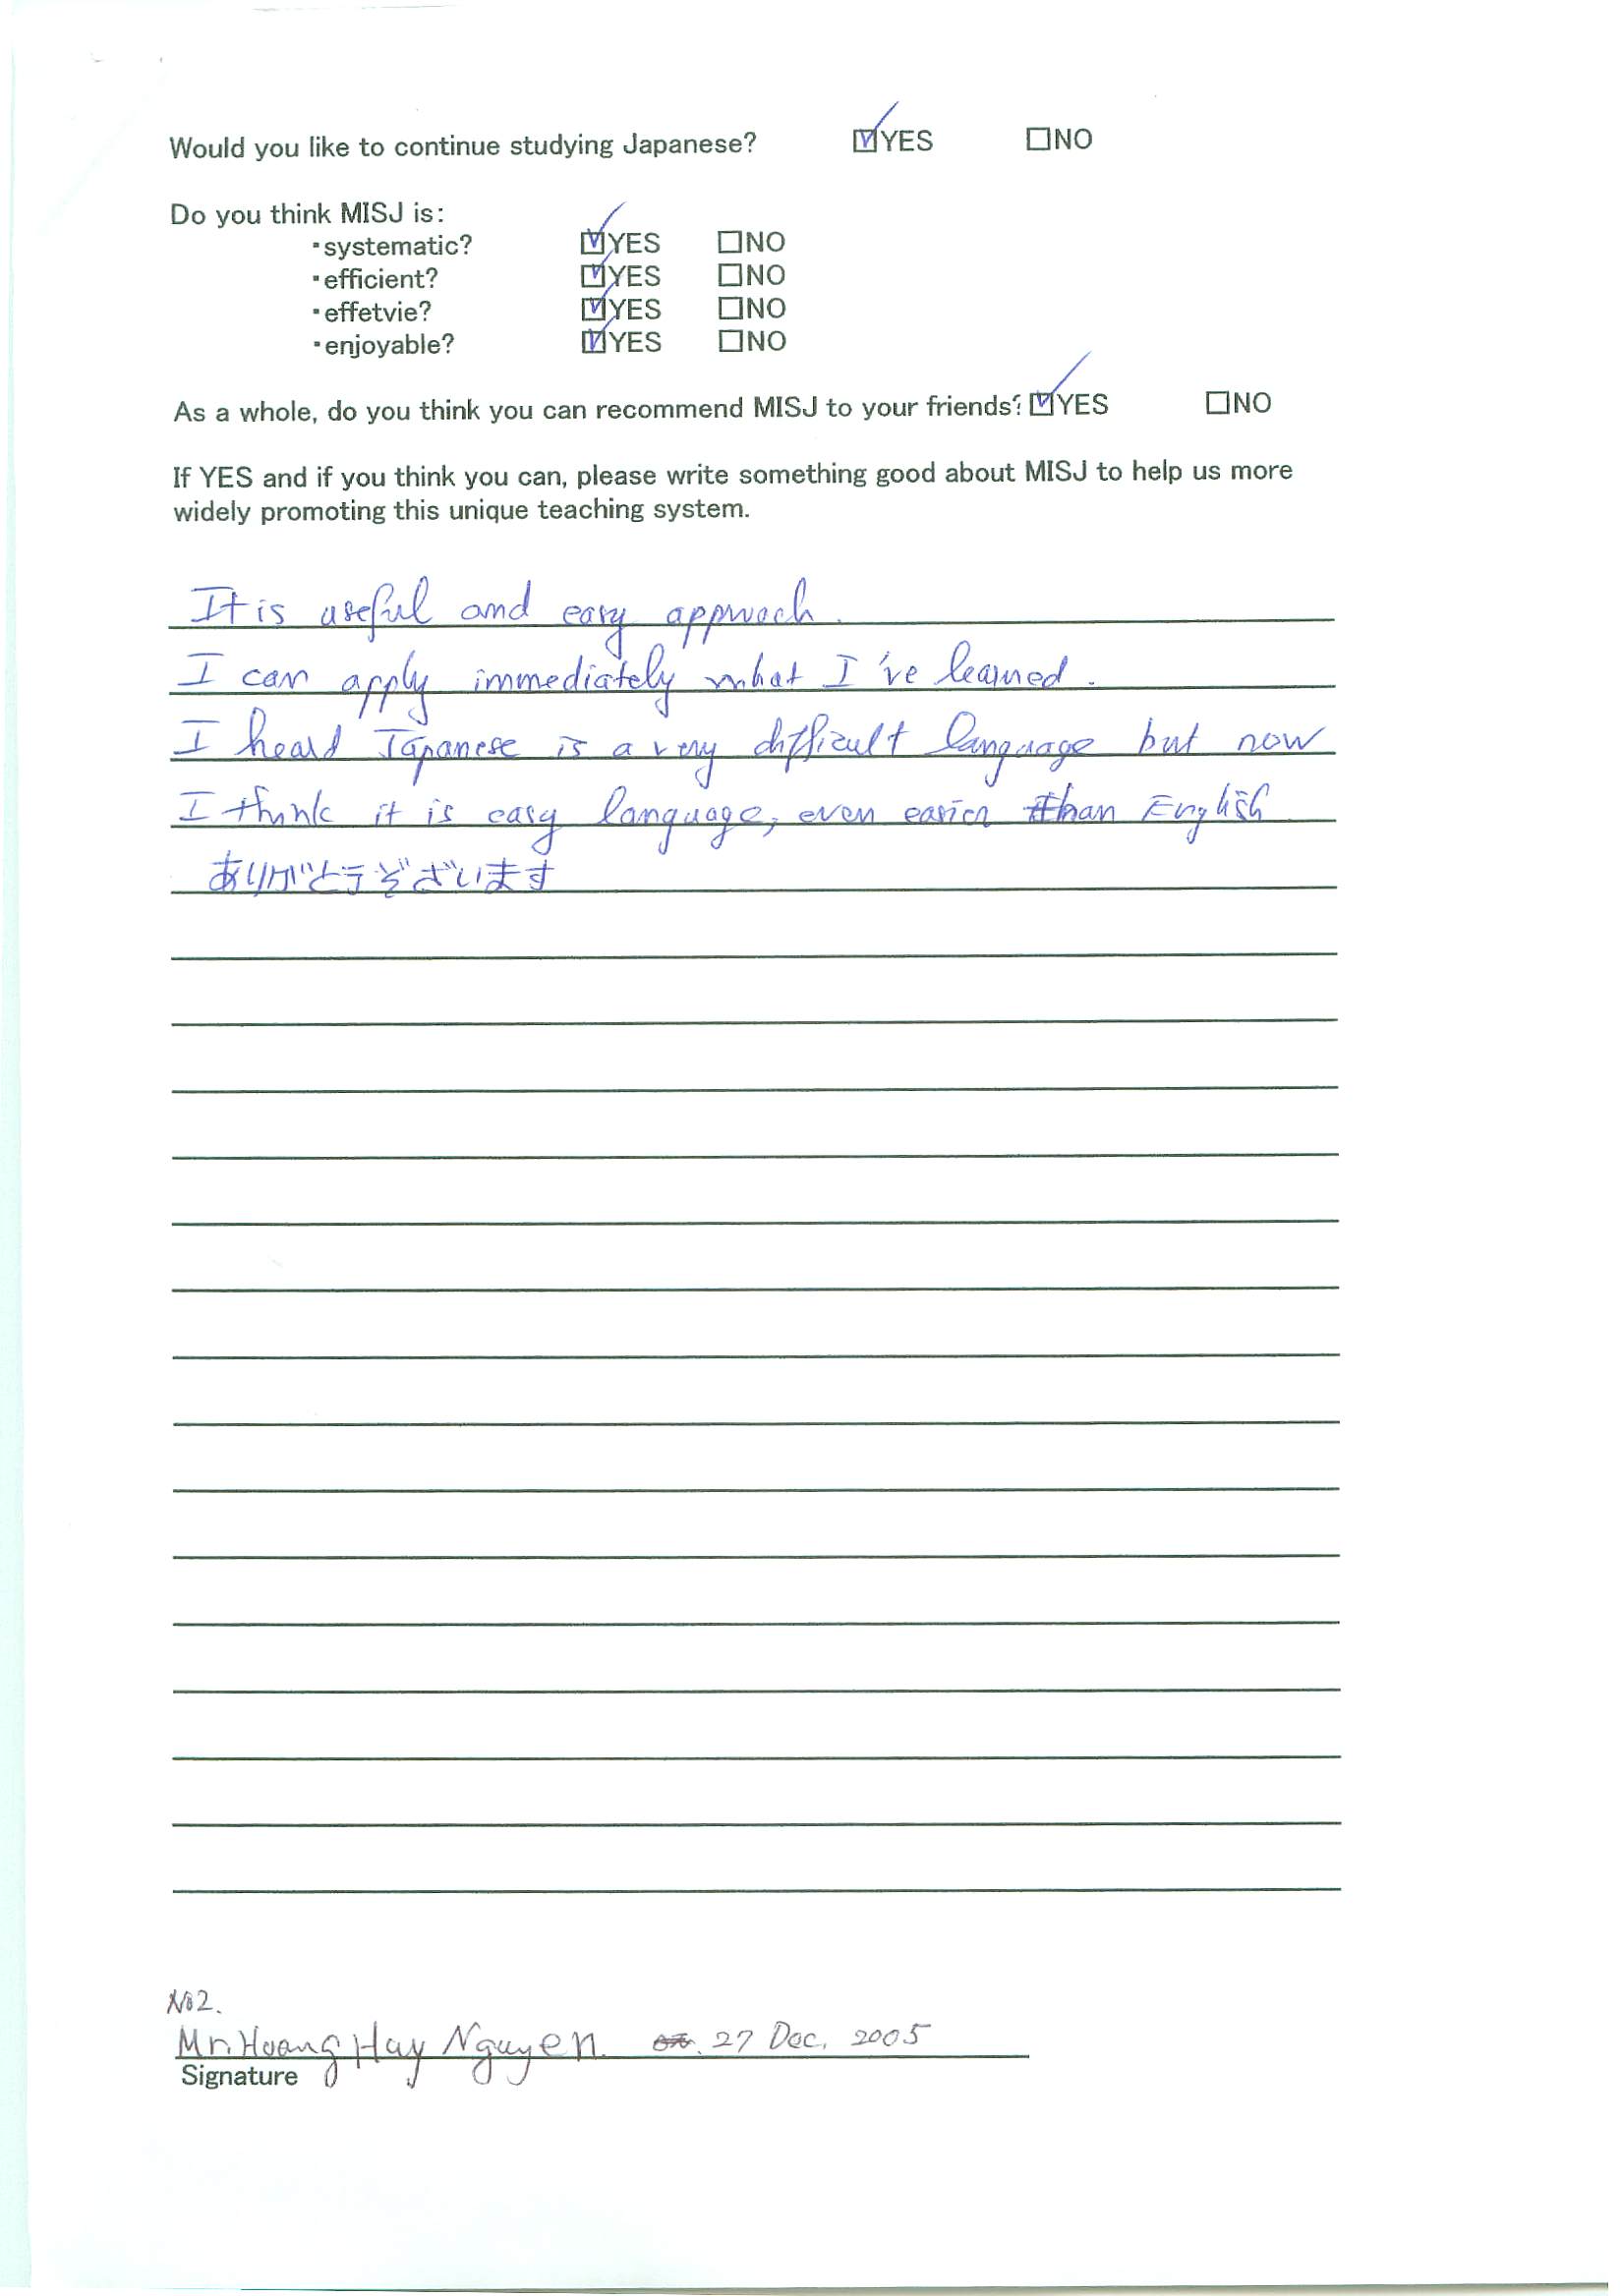 Would you like to continue studying Japanese? ☑YES ☐NO
Do you think MISJ is:
・systematic? ☑YES ☐NO
・efficient? ☑YES ☐NO
・effetvie? ☑YES ☐NO
・enjoyable? ☑YES ☐NO
As a whole, do you think you can recommend MISJ to your friends? ☑YES ☐NO
If YES and if you think you can, please write something good about MISJ to help us more
widely promoting this unique teaching system.
It is useful and easy approach.
I can apply immediately what I've learned.
I heard Japanese is a very difficult language but now
I think it is easy language, even easier than English
ありがとうぞざいます
No2.
Mr. Hoang Hay Nguyen. 27 Dec. 2005
Signature